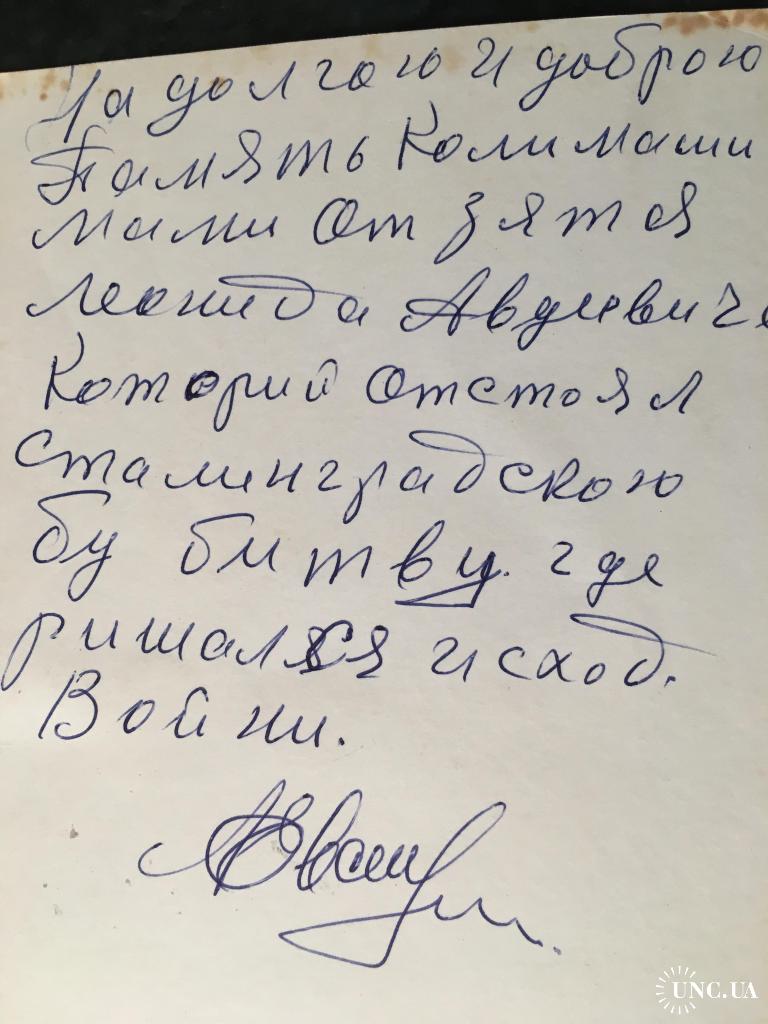 На долгою и доброю
Память Коли маши
мами От зятя
Леонида Авдиевича
Который отстоял
Сталинградскою
бу битву. где
ришалася исход.
Войни.
UNC.UA